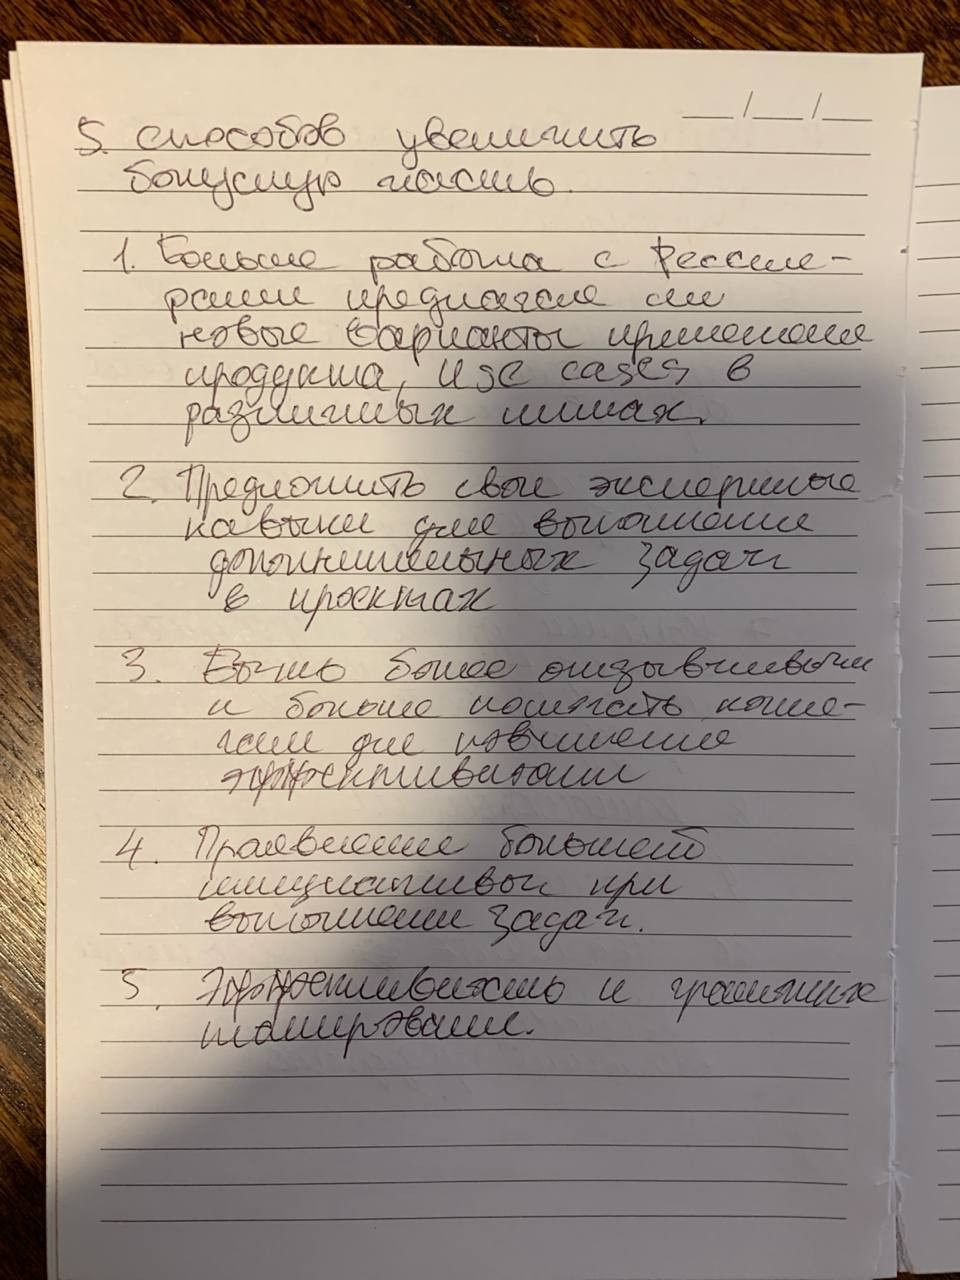 5. способов увеличить
бонусную часть.
1. Больше работа с Рессле-
рами предлагая им
новые варианты применения
продукта, use cases в
различных нишах.
2. Предложить свои экспертные
навыки для выполнения
дополнительных задач
в проектах
3. Быть более отзывчивым
и больше помогать колле-
гам для повышения
эффективности
4. Проявление большей
инициативы при
выполнении задач.
5. Эффективность и грамотное
планирование.